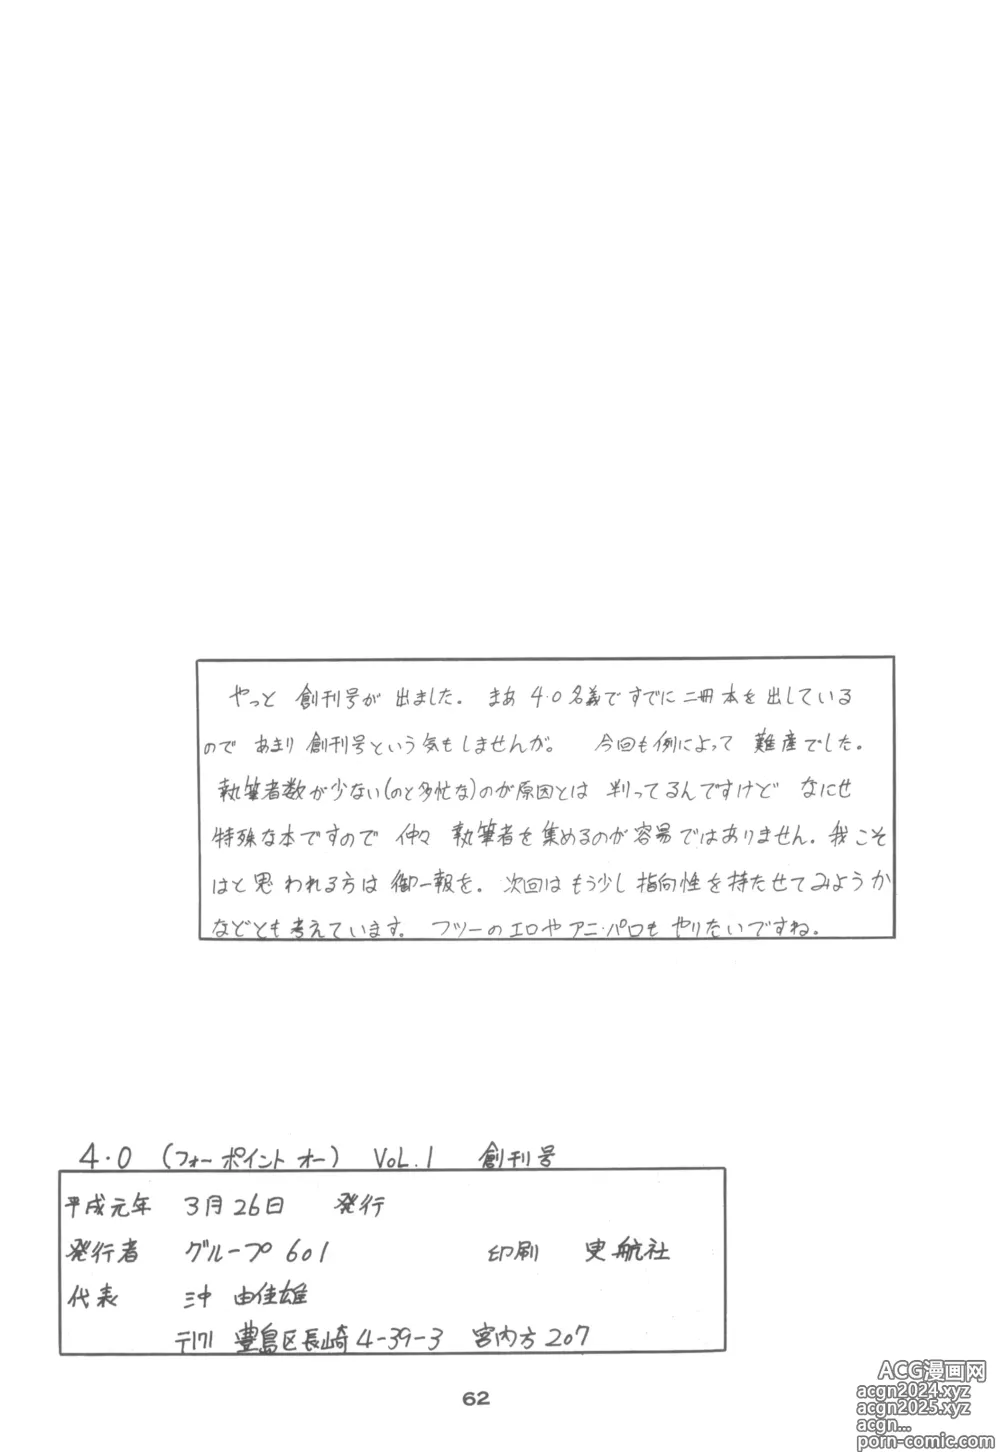 やっと 創刊号が 出ました。 まあ 4.0名義ですでに二冊本を出している
ので あまり 創刊号という気もしませんが。 今回も例によって 難産でした。
執筆者数が少ない(のと多忙な)のが原因とは 判ってるんですけど なにせ
特殊な本ですので 仲々 執筆者を集めるのが容易ではありません。我こそ
はと思われる方は御一報を。次回はもう少し指向性を持たせてみようか
などとも考えています。 フツーのエロやアニ・パロも やりたいですね。
4・0 (フォー ポイント オー) VOL.1 創刊号
平成元年 3月26日 発行
発行者 グループ601 印刷 史航社
代表 沖 由佳雄
〒171 豊島区長崎4-39-3 宮内方207
62
ACG漫画网
acgn2024.xyz
acgn2025.xyz
acgn...
porn-comic.com